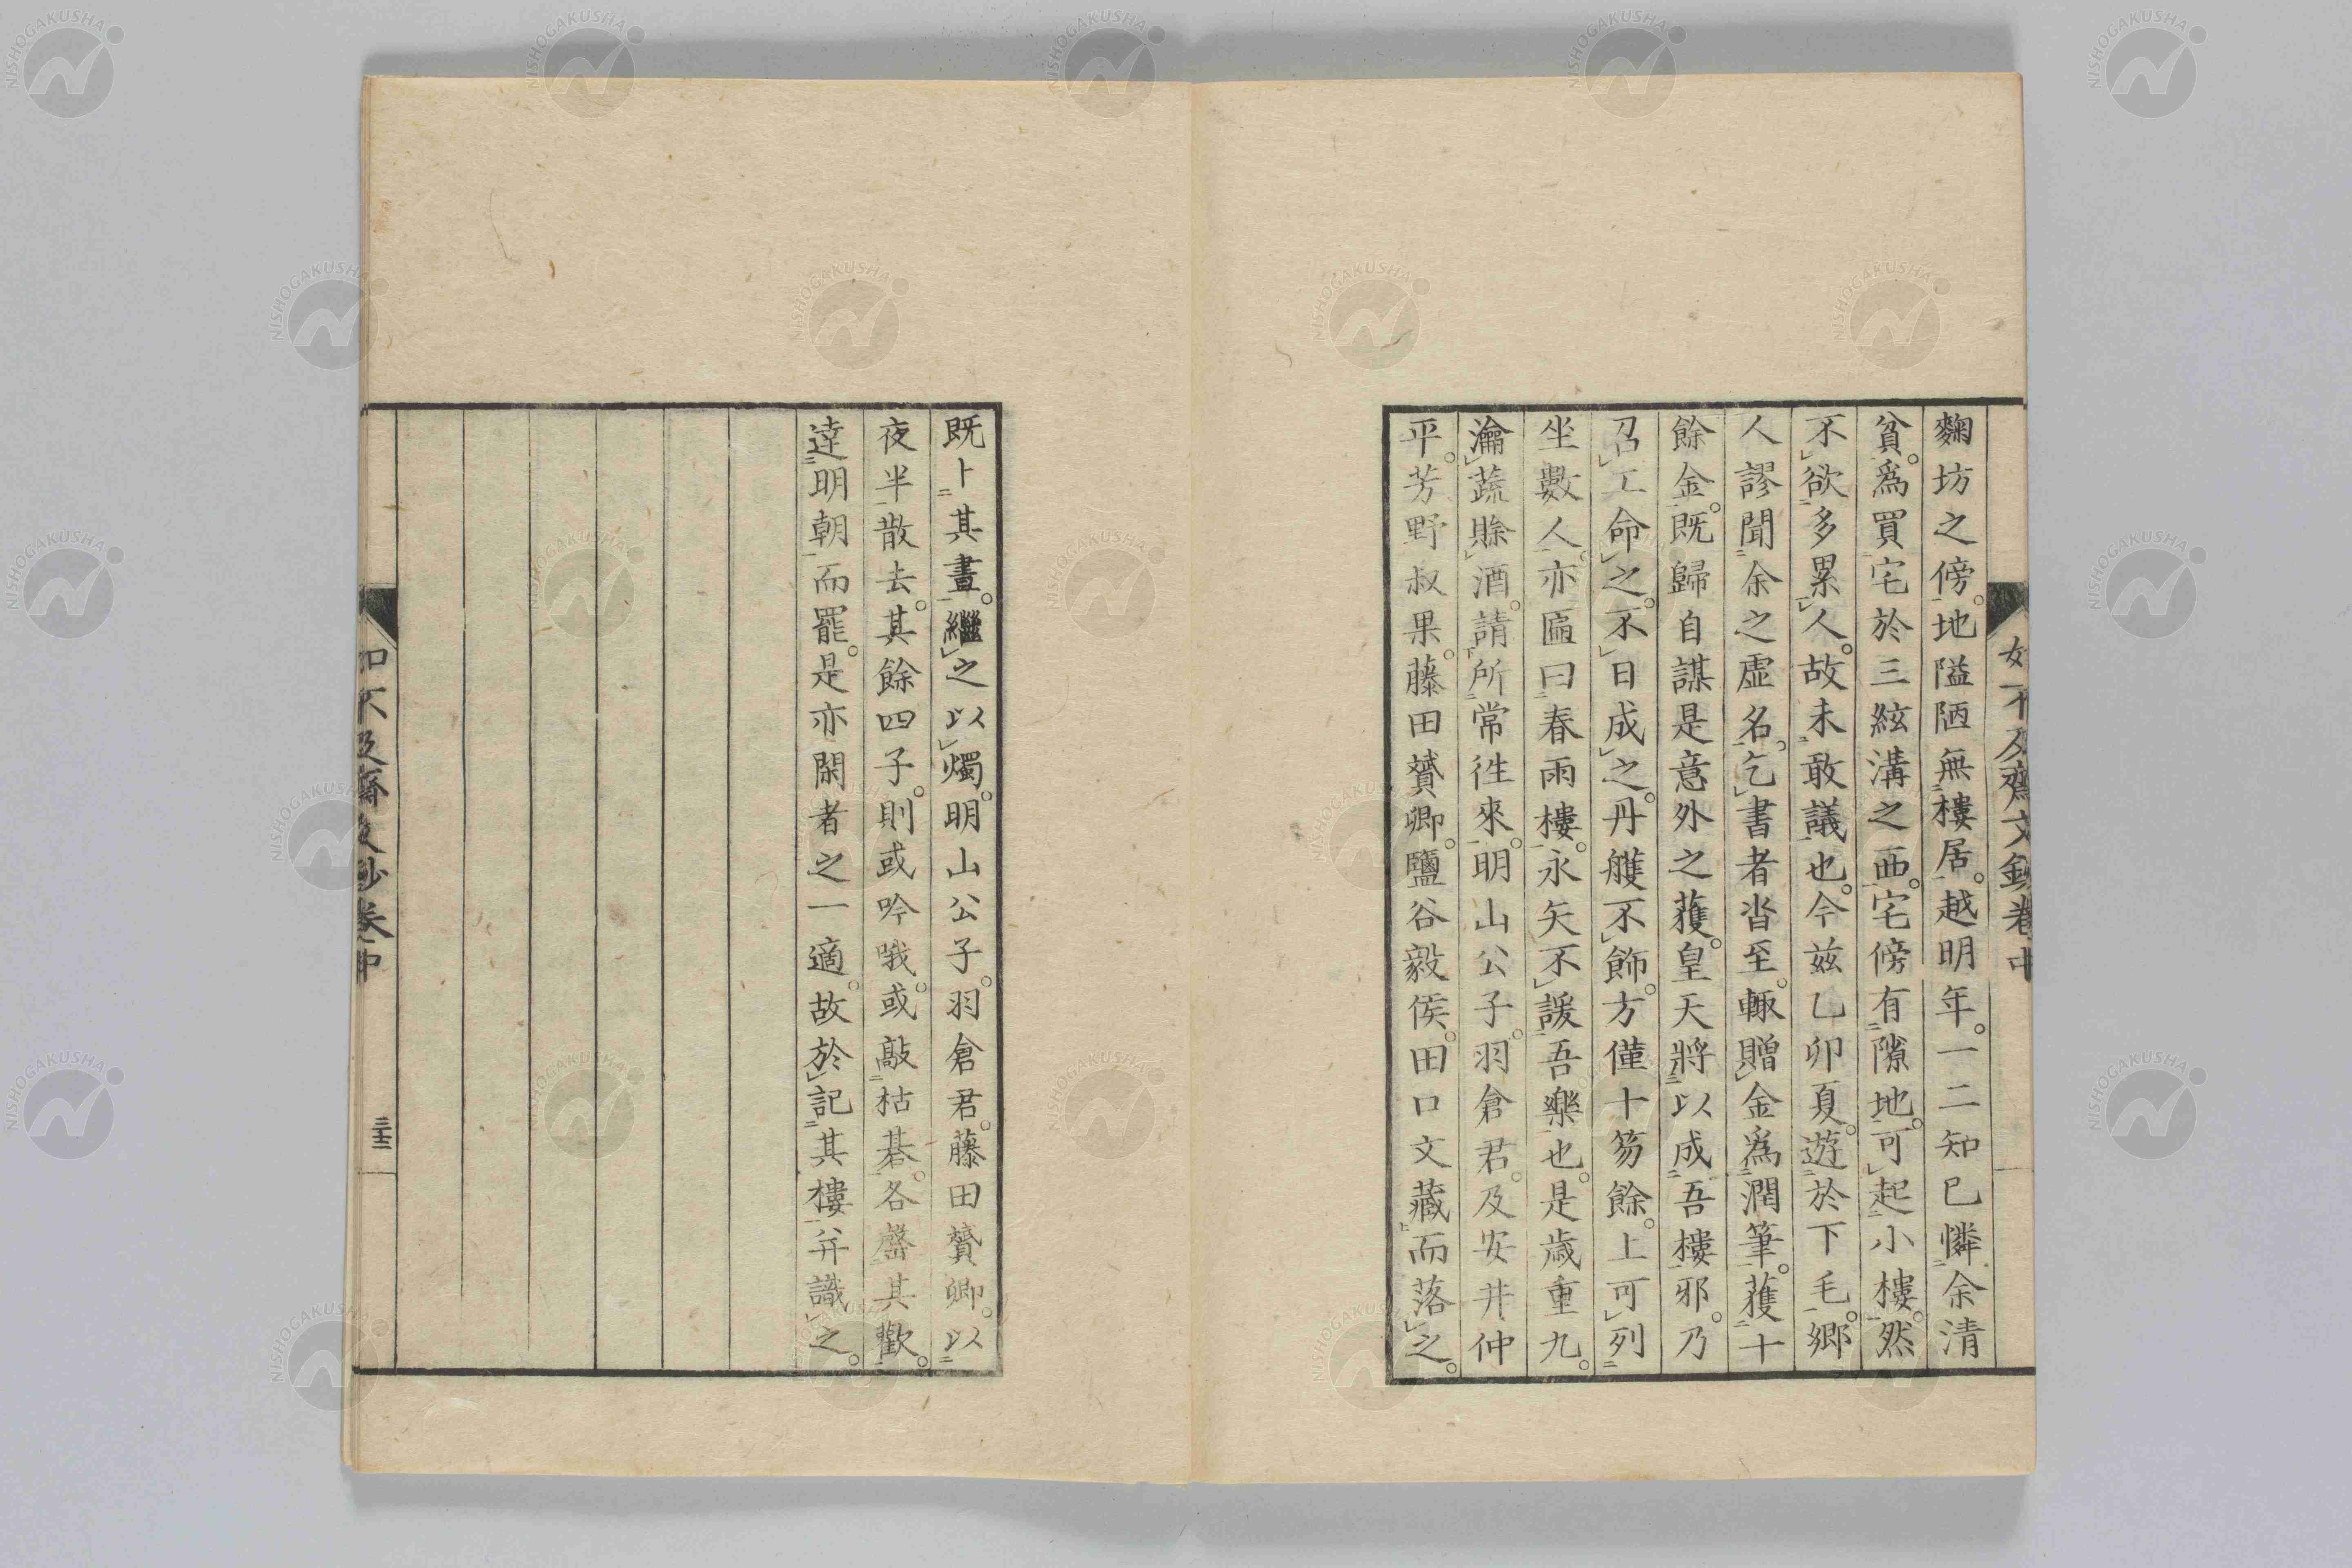 如不及齋文鈔卷中
麴坊之傍。地隘陋無樓居。越明年。一二知己憐余清
貧。爲買宅於三絃溝之西。宅傍有隙地。可起小樓。然
不欲多累人。故未敢議也。今茲乙卯夏。遊於下毛。鄉
人謬聞余之虛名。乞書者沓至。輙贈金爲潤筆。獲十
餘金。既歸自謀是意外之獲。皇天將以成吾樓邪。乃
召工命之。不日成之。丹雘不飾。方僅十笏餘。上可列
坐數人。亦匾曰春雨樓。永矢不諼吾樂也。是歲重九。
瀹蔬賖酒。請所常徃來。明山公子。羽倉君。及安井仲
平。芳野叔果。藤田贇卿。鹽谷毅侯。田口文藏而落之。
既卜其晝。繼之以燭。明山公子。羽倉君。藤田贇卿。以
夜半散去。其餘四子。則或吟哦。或敲枯碁。各罄其歡。
達明朝而罷。是亦閑者之一適。故於記其樓幷識之。
如不及齋文鈔卷中
三十三
NISHOGAKUSHA